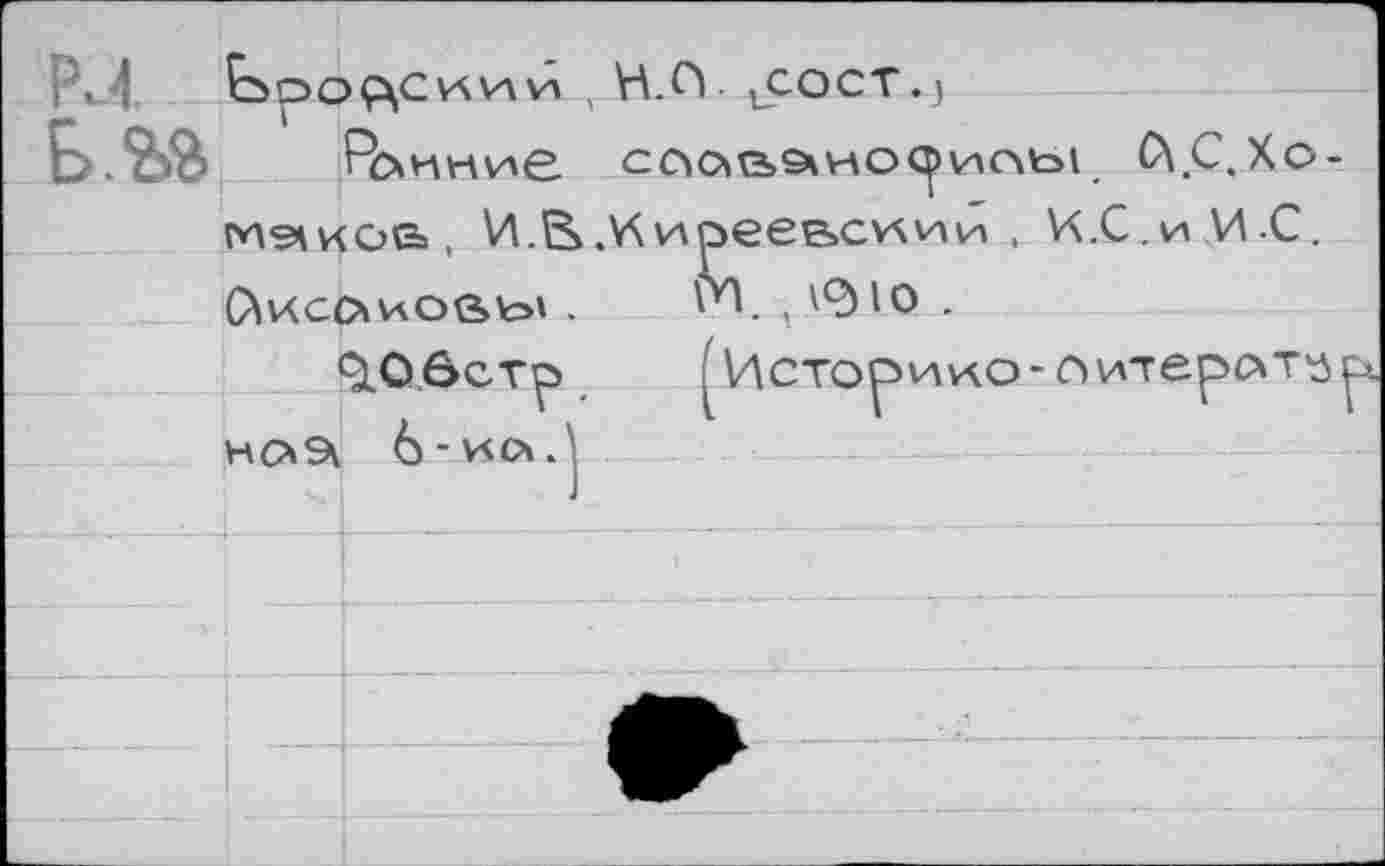 Р.4 Бродский, Н.Л. [сост.]
Б.88 Ранние славянофилы. А.С.Хо-
мяков, И.В.Киреевский, К.С. и И.С.
Аксаковы. М., 1910.
206стр. [Историко-литератур-
ная б-ка.]